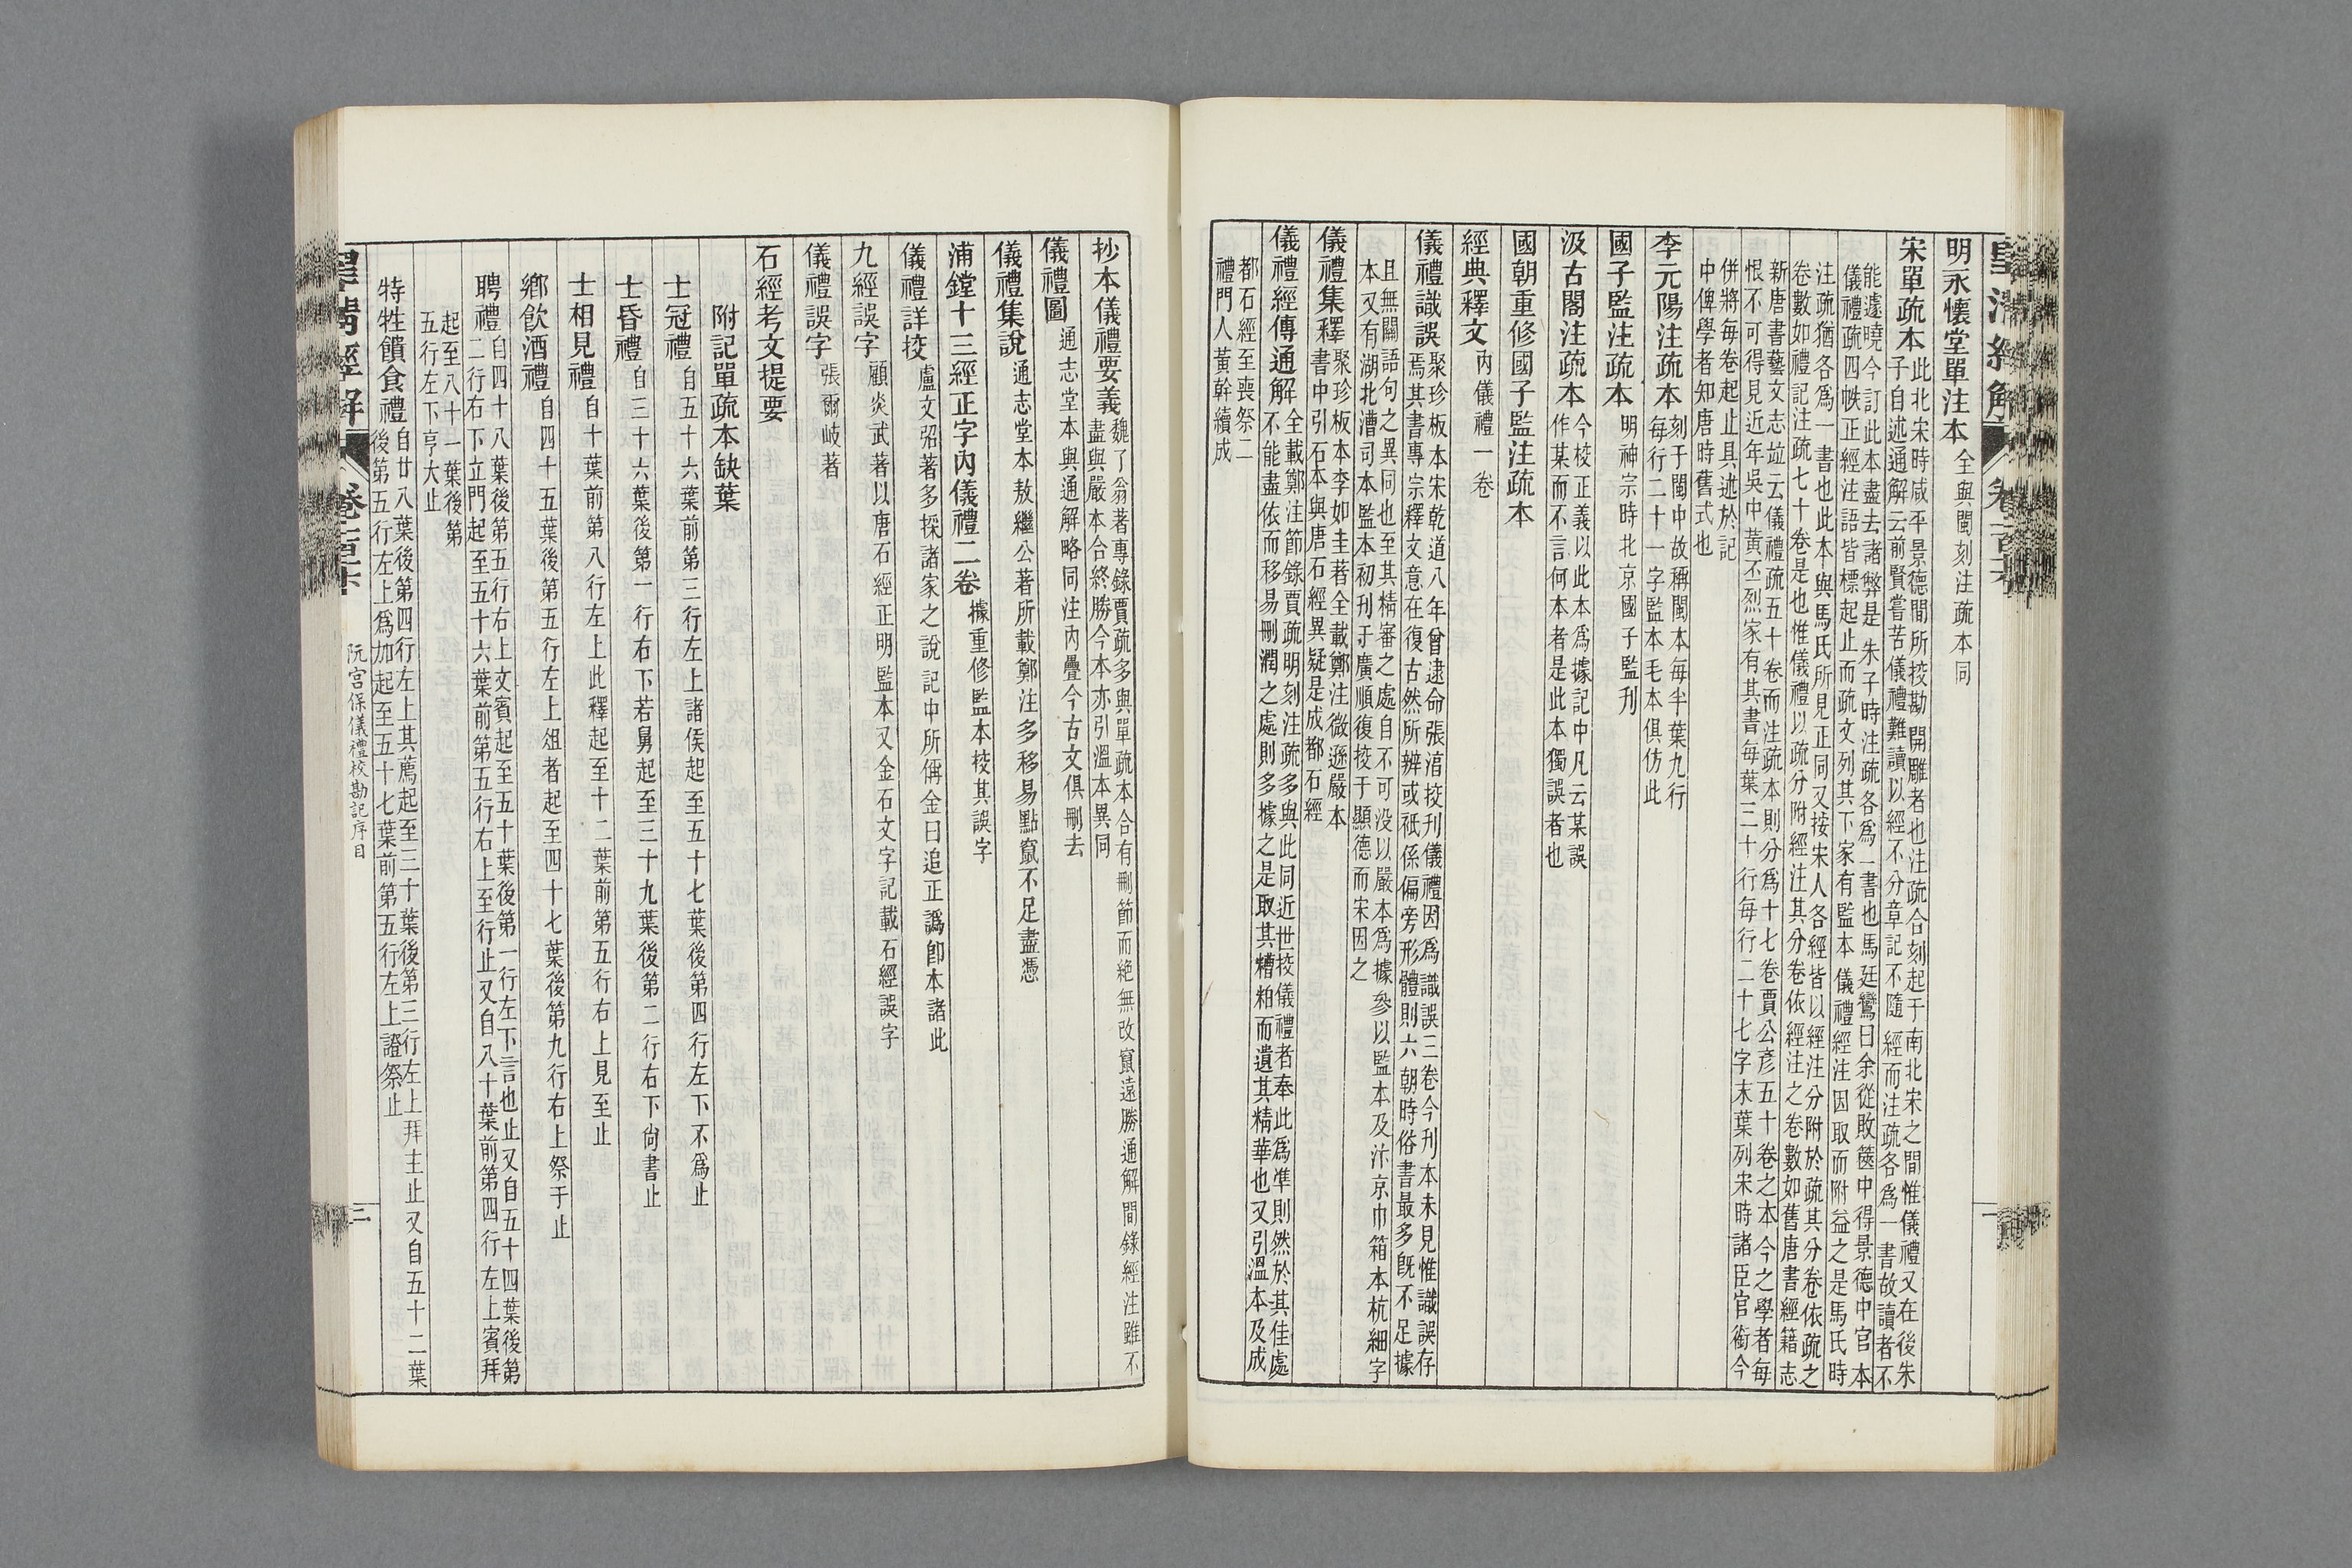 明永懷堂單注本 全與閩刻注疏本同
宋單疏本 此北宋時咸平景德間所校勘開雕者也注疏合刻起于南北宋之間惟儀禮又在後朱
子自述通解云前賢嘗苦儀禮難讀以經不分章記不隨經而注疏各爲一書故讀者不
能遽曉今訂此本盡去諸弊是朱子時注疏各爲一書也馬廷鸞曰余從敗篋中得景德中官本
儀禮疏四帙正經注語皆標起止而疏文列其下家有監本儀禮經注因取而附益之是馬氏時
注疏猶各爲一書也此本與馬氏所見正同又按宋人各經皆以經注分附於疏其分卷依疏之
卷數如禮記注疏七十卷是也惟儀禮以疏分附經注其分卷依經注之卷數如舊唐書經籍志
新唐書藝文志竝云儀禮疏五十卷而注疏本則分爲十七卷賈公彥五十卷之本今之學者每
恨不可得見近年吳中黃丕烈家有其書每葉三十行每行二十七字末葉列宋時諸臣官銜今
併將每卷起止具述於記
中俾學者知唐時舊式也
李元陽注疏本 刻于閩中故稱閩本每半葉九行
每行二十一字監本毛本俱仿此
國子監注疏本 明神宗時北京國子監刊
汲古閣注疏本 今校正義以此本爲據記中凡云某誤
作某而不言何本者是此本獨誤者也
國朝重修國子監注疏本
經典釋文 內儀禮一卷
儀禮識誤 聚珍板本宋乾道八年曾逮命張淯挍刊儀禮因爲識誤三卷今刊本未見惟識誤存
焉其書專宗釋文意在復古然所辨或祇係偏旁形體則六朝時俗書最多旣不足據
且無關語句之異同也至其精審之處自不可没以嚴本爲據參以監本及汴京巾箱本杭細字
本又有湖北漕司本監本初刊于廣順復挍于顯德而宋因之
儀禮集釋 聚珍板本李如圭著全載鄭注微遜嚴本
書中引石本與唐石經異疑是成都石經
儀禮經傳通解 全載鄭注節錄賈疏明刻注疏多與此同近世挍儀禮者奉此爲準則然於其佳處
不能盡依而移易刪潤之處則多據之是取其糟粕而遺其精華也又引溫本及成
都石經至喪祭二
禮門人黃幹續成
抄本儀禮要義 魏了翁著專錄賈疏多與單疏本合有刪節而絶無改竄遠勝通解間錄經注雖不
盡與嚴本合終勝今本亦引溫本異同
儀禮圖 通志堂本與通解略同注內疊今古文俱刪去
儀禮集說 通志堂本敖繼公著所載鄭注多移易點竄不足盡憑
浦鏜十三經正字內儀禮二卷 據重修監本挍其誤字
儀禮詳挍 盧文弨著多採諸家之說記中所偁金曰追正譌卽本諸此
九經誤字 顧炎武著以唐石經正明監本又金石文字記載石經誤字
儀禮誤字 張爾岐著
石經考文提要
附記單疏本缺葉
士冠禮 自五十六葉前第三行左上諸侯起至五十七葉後第四行左下不爲止
士昏禮 自三十六葉後第一行右下若舅起至三十九葉後第二行右下尙書止
士相見禮 自十葉前第八行左上此釋起至十二葉前第五行右上見至止
鄉飮酒禮 自四十五葉後第五行左上俎者起至四十七葉後第九行右上祭于止
聘禮 自四十八葉後第五行右上文賓起至五十葉後第一行左下言也止又自五十四葉後第
二行右下立門起至五十六葉前第五行右上至行止又自八十葉前第四行左上賓拜
起至八十一葉後第
五行左下亨大止
特牲饋食禮 自廿八葉後第四行左上其薦起至三十葉後第三行左上拜主止又自五十二葉
後第五行左上爲加起至五十七葉前第五行左上證祭止
皇清經解 阮宮保儀禮校勘記序目 二